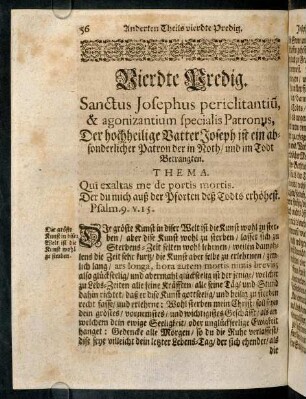 56 Anderten Theils vierdte Predig.
Vierdte Predig.
Sanctus Josephus periclitantiũ,
& agonizantium specialis Patronus,
Der hochheilige Vatter Joseph ist ein ab-
sonderlicher Patron der in Noth/ und im Todt
Betrangten.
THEMA.
Qui exaltas me de portis mortis.
Der du mich auß der Pforten deß Todts erhöhest.
Psalm. 9. v. 15.
Die gröste
Kunst in diser
Welt ist die
Kunst wohl
zu sterben.
Die gröste Kunst in diser Welt ist die Kunst wohl zu ster-
ben/ aber dise Kunst wohl zu sterben/ lasset sich zu
Sterbens-Zeit selten wohl lehrnen/ weilen dannah-
lend die Zeit sehr kurtz/ die Kunst aber selbe zu erlehrnen/ zem-
lich lang/ ars longa, hora autem mortis nimis brevis,
also glückseelig/ und abermahl glückseelig ist der jenige/ welcher
zu Lebs-Zeiten alle seine Kräfften/ alle seine Täg/ und Stund
dahin richtet/ daß er dise Kunst gottseelig/ und heilig zu sterben
recht fasse/ und erlehrne: Wohl sterben mein Christ/ soll seyn
dein gröstes/ vornemstes/ und wichtigistes Geschäfft/ als an
welchem dein ewige Seeligkeit/ oder unglückseelige Ewigkeit
hanget: Gedencke alle Morgen/ so du die Ruhe verlassest/
diser seye villeicht dein letzter Lebens-Tag/ der sich ehender/ als
die